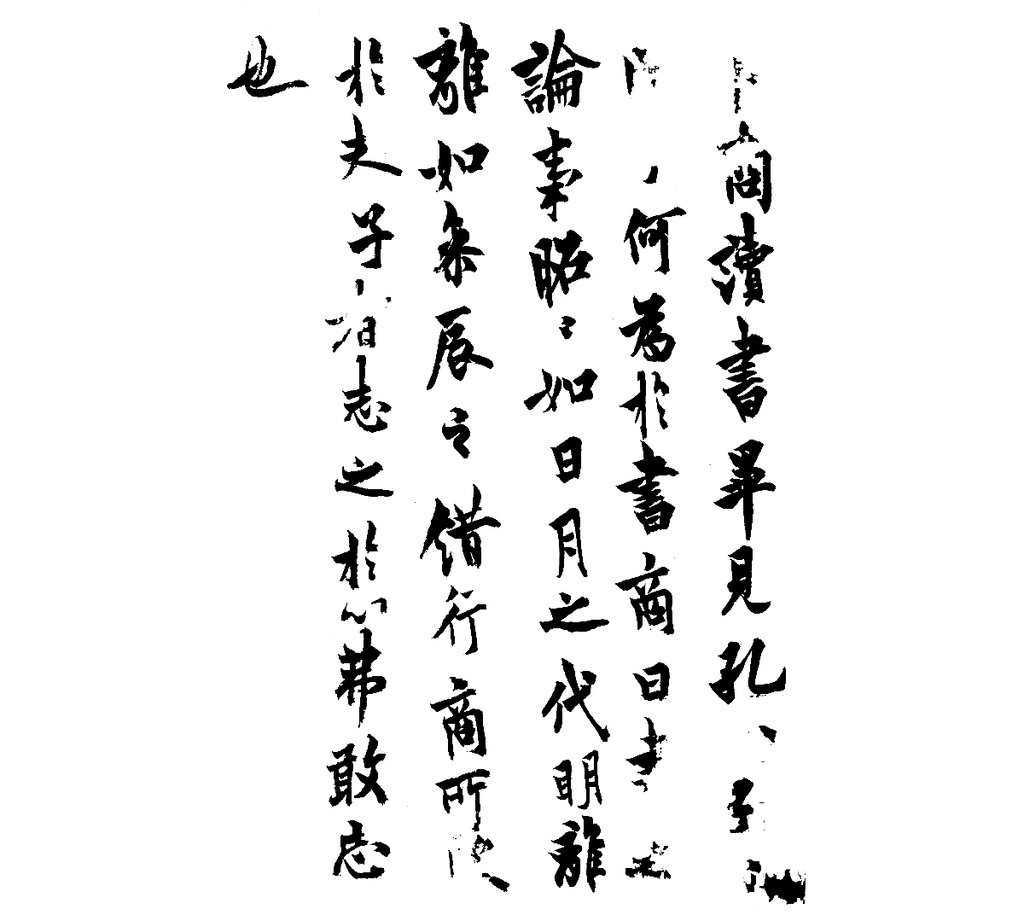 商讀書畢見孔子
何為於書商曰書之
論事昭〻如日月之代明離
離如參辰之錯行商所受
於夫子者志之於心弗敢忘
也